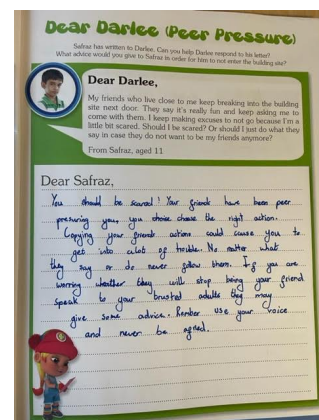 Dear Darlee (Peer Pressure)
Safraz has written to Darlee. Can you help Darlee respond to his letter?
What advice would you give to Safraz in order for him to not enter the building site?
Dear Darlee,
My friends who live close to me keep breaking into the building
site next door. They say it's really fun and keep asking me to
come with them. I keep making excuses to not go because I'm a
little bit scared. Should I be scared? Or should I just do what they
say in case they do not want to be my friends anymore?
From Safraz, aged 11
Dear Safraz,
You should be scared! Your friends have been peer
presuring you, you choice choose the right action.
Copying your friends actions could cause you to
get into alot of trouble. No matter what
they say or do never follow them. If you are
worring whether they will stop being your friend
speak to your trusted adults they may
give some advice. Rember use your voice
and never be